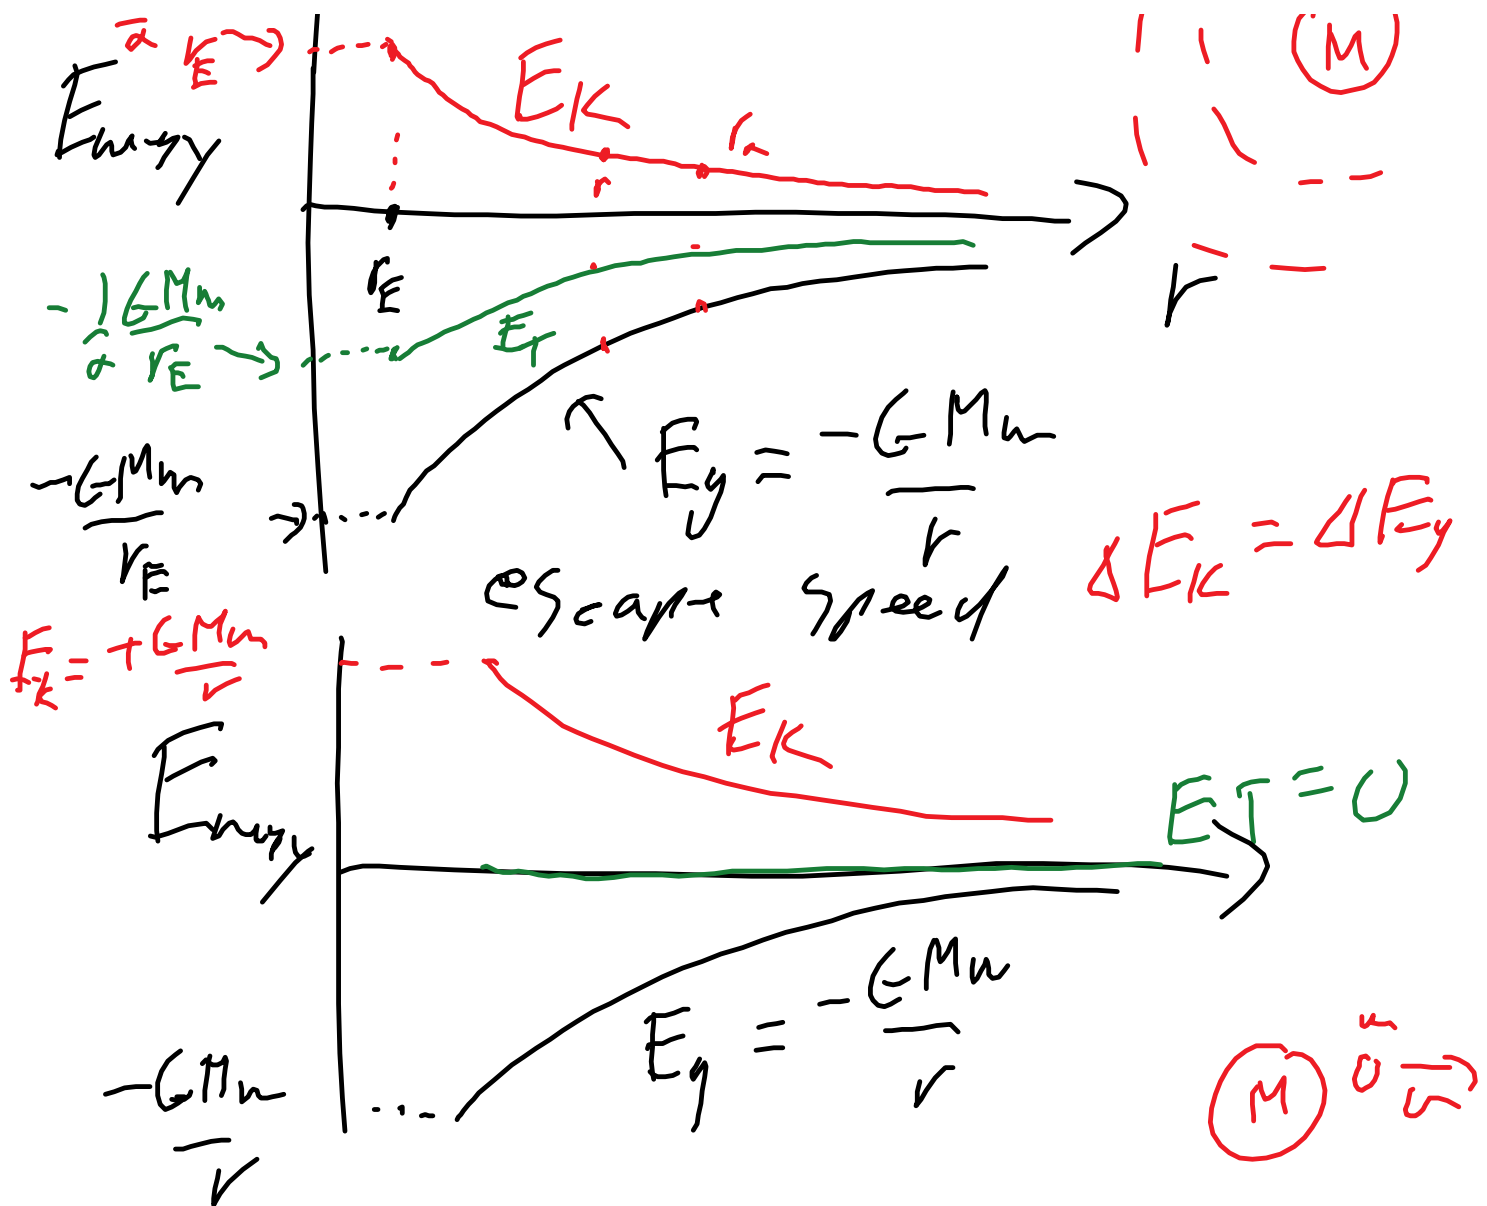 2 r_E
Energy
E_K
M
r_E
r
-1/2 GMm/r_E
E_T
r
-GMm/r_E
E_g = -GMm/r
ΔE_K = ΔE_g
escape speed
E_K = +GMm/r
Energy
E_K
E_T = 0
E_g = -GMm/r
-GMm/r
M
m